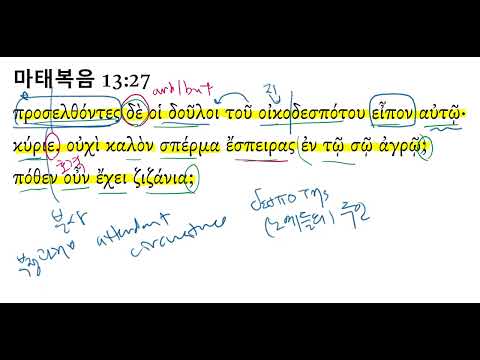 마태복음 13:27
and/but
집
προσελθόντες δὲ οἱ δοῦλοι τοῦ οἰκοδεσπότου εἶπον αὐτῷ·
κύριε, οὐχὶ καλὸν σπέρμα ἔσπειρας ἐν τῷ σῷ ἀγρῷ;
πόθεν οὖν ἔχει ζιζάνια;
분사
attendant
circumstance
δεσποτης
(노예들의) 주인